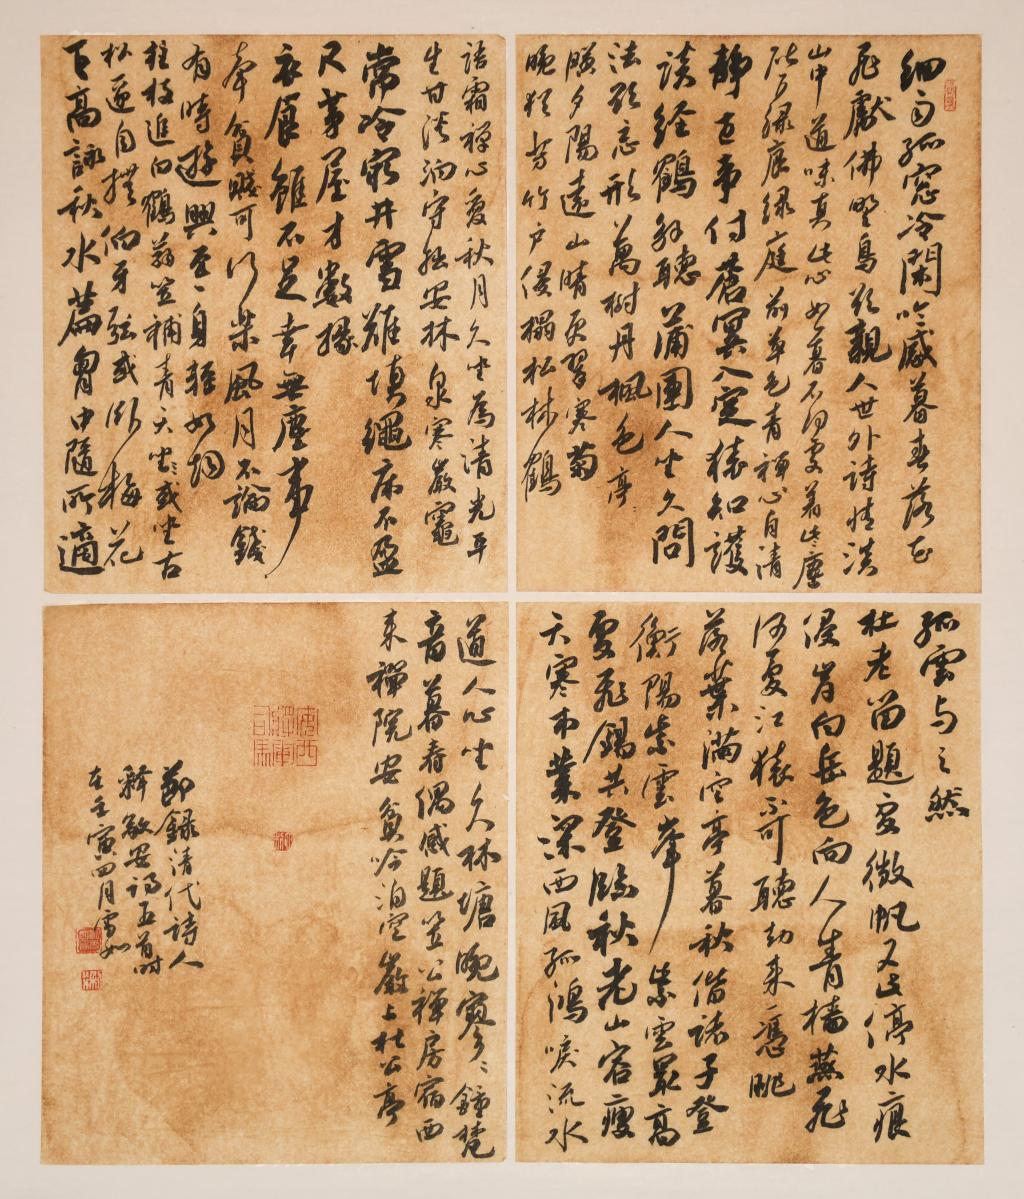 细雨孤窓冷閑吟感暮春落花
飛獻佛野鳥欲親人世外詩情淡
山中道味真此心如暮不得受着此塵
砍户緑展緑庭前草色青禅心自清
静百事付蒼冥入定猿知護
談経鶴解聴蒲團人坐久問
法欲忘形萬樹丹楓色亭
賸夕陽遠山晴更翠寒菊
晚猶芳竹户侵楊松林鶴
語霜禅心爰秋月久坐為清光平
生甘淡泊守拙在林泉寒巌竈
常冷穷井雪难填繩床不盈
尺茅屋才數椽
衣食雖不足幸無塵事
牽貧賤可行樂風月不論錢
有時遊興至一身輕如烟
柱杖追白鶴蒻笠補青天坐坐或坐古
松逆自撫伯牙弦或訪梅花
下高詠秋水篇胷中随所適
孤雲与之然
杜老留題處微帆又此停水痕
侵岸白岳色向人青檣燕飛
何處江猿哥聴幼来一憑眺
落葉滿空亭暮秋偕諸子登
衡陽紫雲峯 紫雲最高
處飛錫共登臨秋老山容瘦
天寒木葉深西風孤鴻唳流水
道人心坐久林塘晚寥寥鐘梵
音暮春偶感題笠公禅房宿西
来禪院安貧吟泊空巌上杜公亭
節録清代詩人
釋敬安詩五首時
在壬寅四月雪如